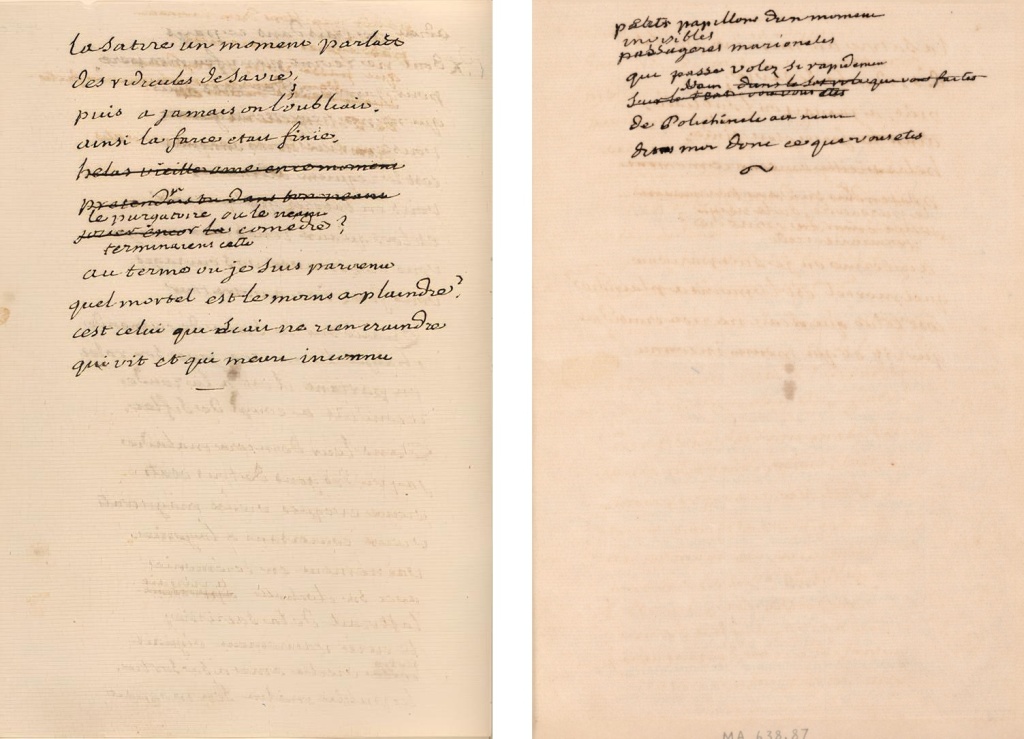 la satire un moment parlait
des ridicules de sa vie,
puis a jamais on l'oubliait.
ainsi la farce etait finie.
helas vieille ame en ce moment
pretendais tu dans ton neant
le purgatoire, ou le neant
jouer encor la comedie?
terminaient cette
au terme ou je suis parvenu
quel mortel est le moins a plaindre?
cest celui qui scait ne rien craindre
qui vit et qui meurt inconnu
petits papillons dun moment
invisibles
passageres marionetes
qui passe volez si rapidement
dans
de Polichinele au neant
dites moi donc ce que vous etes
MA 638.87